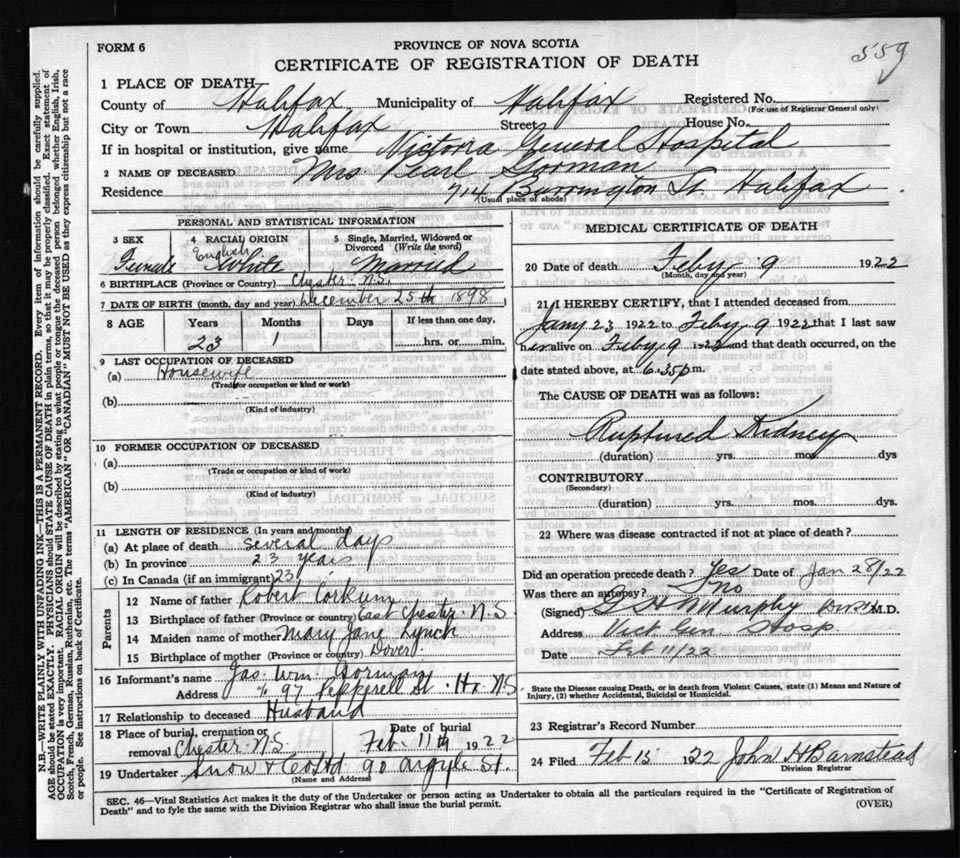 FORM 6
PROVINCE OF NOVA SCOTIA
559
CERTIFICATE OF REGISTRATION OF DEATH
1 PLACE OF DEATH
County of Halifax Municipality of Halifax Registered No.
(For use of Registrar General only)
City or Town Halifax Street House No.
If in hospital or institution, give name Victoria General Hospital
2 NAME OF DECEASED Mrs Pearl Gorman
Residence 714 Barrington St. Halifax
(Usual place of abode)
PERSONAL AND STATISTICAL INFORMATION
3 SEX 4 RACIAL ORIGIN 5 Single, Married, Widowed or Divorced (Write the word)
Female English White Married
6 BIRTHPLACE (Province or Country) Chester N.S.
7 DATE OF BIRTH (month, day and year) December 25th 1898
8 AGE Years Months Days If less than one day,
23 1 hrs. or min.
9 LAST OCCUPATION OF DECEASED
(a) Housewife
(Trade or occupation or kind or work)
(b)
(Kind of industry)
10 FORMER OCCUPATION OF DECEASED
(a)
(Trade or occupation or kind of work)
(b)
(Kind of industry)
11 LENGTH OF RESIDENCE (In years and months)
(a) At place of death several days
(b) In province 23 years
(c) In Canada (if an immigrant) 23
Parents
12 Name of father Robert Corkum
13 Birthplace of father (Province or country) East Chester N.S.
14 Maiden name of mother Mary Jane Lynch
15 Birthplace of mother (Province or country) Dover
16 Informant's name Jas. Wm. Gorman
Address % 97 Pepperell St. Hx N.S
17 Relationship to deceased Husband
18 Place of burial, cremation or removal Chester N.S. Date of burial Feb. 11th 1922
19 Undertaker Snow & Co Ltd 90 Argyle St.
(Name and Address)
MEDICAL CERTIFICATE OF DEATH
20 Date of death Feby 9 1922
(Month, day and year)
21 I HEREBY CERTIFY, that I attended deceased from
Jany 23 1922 to Feby 9 1922 that I last saw
her alive on Feby 9 1922 and that death occurred, on the
date stated above, at 6.35 p m.
The CAUSE OF DEATH was as follows:
Ruptured Kidney
(duration) yrs. mos. dys
CONTRIBUTORY
(Secondary)
(duration) yrs. mos. dys.
22 Where was disease contracted if not at place of death?
Did an operation precede death? Yes Date of Jan 28/22
Was there an autopsy? No
(Signed) Murphy M.D.
Address Vict Gen. Hosp
Date Feb 11/22
State the Disease causing Death, or in death from Violent Causes, state (1) Means and Nature of Injury, (2) whether Accidental, Suicidal or Homicidal.
23 Registrar's Record Number
24 Filed Feb 15 1922 John H Barnstead
Division Registrar
SEC. 46—Vital Statistics Act makes it the duty of the Undertaker or person acting as Undertaker to obtain all the particulars required in the "Certificate of Registration of
Death" and to fyle the same with the Division Registrar who shall issue the burial permit.
(OVER)
N.B.—WRITE PLAINLY WITH UNFADING INK—THIS IS A PERMANENT RECORD. Every item of information should be carefully supplied.
AGE should be stated EXACTLY. PHYSICIANS should STATE CAUSE OF DEATH in plain terms, so that it may be properly classified. Exact statement of
OCCUPATION is very important. RACIAL ORIGIN will be described by stating to what people or tongue the deceased person belonged whether English, Irish,
Scotch, French, German, Russian, Ruthenian, etc. The terms "AMERICAN" OR "CANADIAN" MUST NOT BE USED as they express citizenship but not a race
or people. See instructions on back of Certificate.